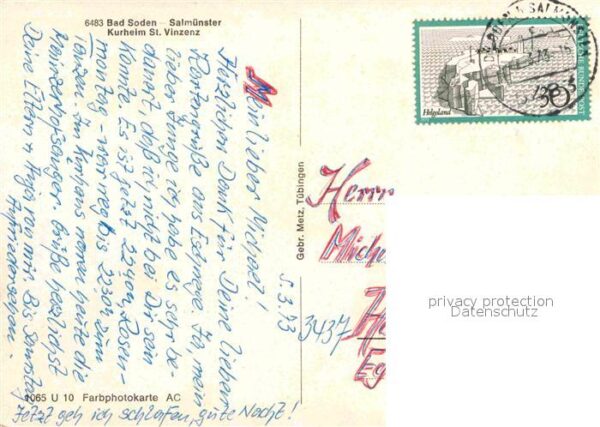 6483 Bad Soden – Salmünster
Kurheim St. Vinzenz
Mein lieber Michael!
Herzlichen Dank für Deine lieben
Kartengrüße aus Ja, mein
lieber Junge ich habe es sehr be-
dauert daß ich nicht bei Dir sein
konnte. Es ist jetzt 22 40h, Rosen-
montag - war reg bis 22 30h zum
Tanzen. Im Kurhaus waren heute die
Mainzer Hofsänger. Grüße herzlichst
Deine Eltern + von mir Bis Samstag
Auf Wiedersehen.
Jetzt geh ich schlafen, gute Nacht!
1065 U 10 Farbphotokarte AC
Gebr. Metz, Tübingen
5.3.73
Helgoland
30
DEUTSCHE BUNDESPOST
SALMÜNSTER
Herrn
Mich
3437
privacy protection
Datenschutz